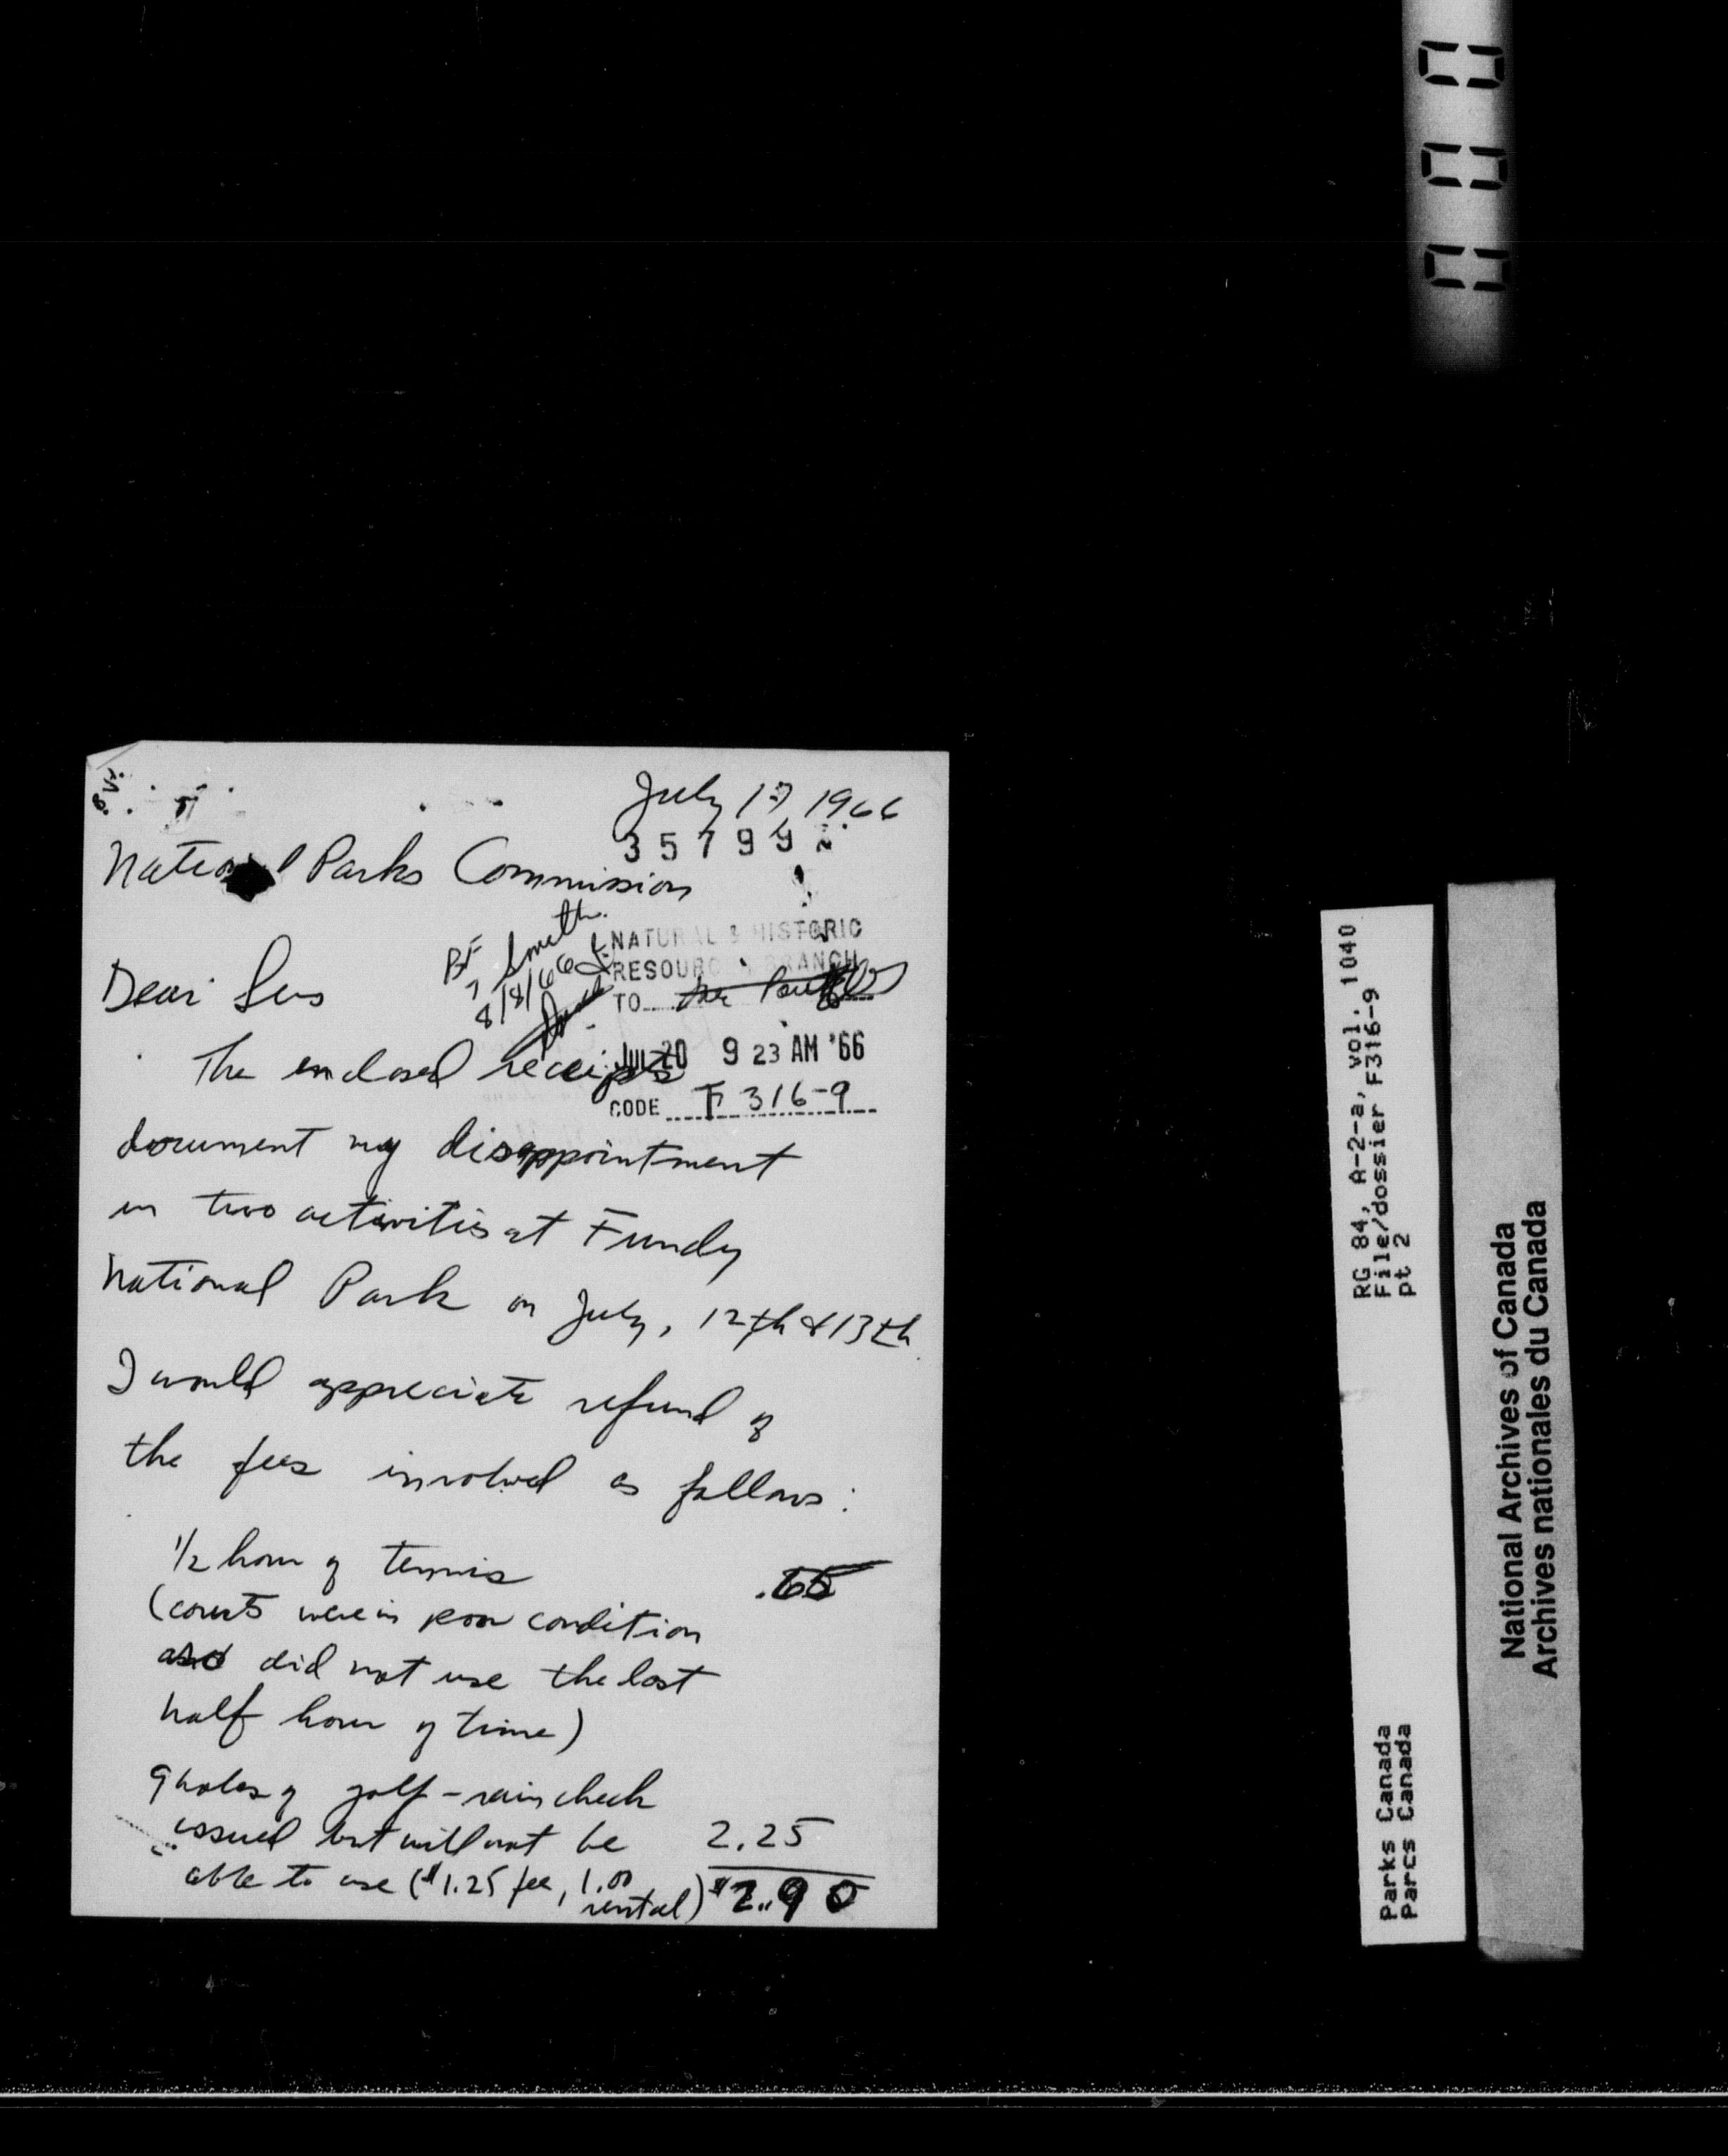 July 17, 1966
35799
National Parks Commission
BF
Smith
8/8/66
NATURAL & HISTORIC
RESOURCES BRANCH
TO
Dear Sirs
JUL 20 9 23 AM '66
The enclosed receipts
CODE F 316-9
document my disappointment
in two activities at Fundy
National Park on July, 12th & 13th
I would appreciate refund of
the fees involved as follows:
1/2 hour of tennis .65
(courts were in poor condition
and did not use the last
half hour of time)
9 holes of golf - rain check
issued but will not be 2.25
able to use ($1.25 fee, 1.00
rental) $2.90
RG 84, A-2-a, vol. 1040
File/dossier F316-9
pt 2
Parks Canada
Parcs Canada
National Archives of Canada
Archives nationales du Canada